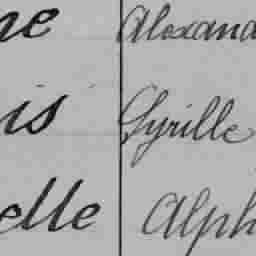 ne Alexand
is Cyrille
elle Alph